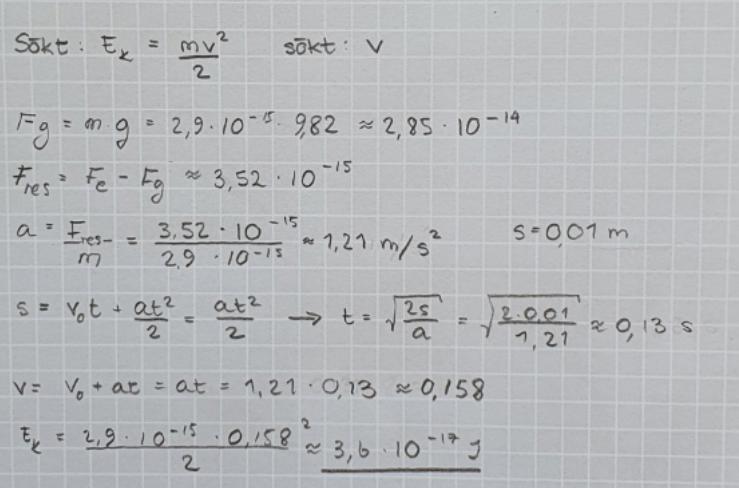 Sökt: E_k = mv²/2   sökt: v
Fg = m·g = 2,9·10⁻¹⁵·9,82 ≈ 2,85·10⁻¹⁴
F_res = F_e - F_g ≈ 3,52·10⁻¹⁵
a = F_res/m = 3,52·10⁻¹⁵/2,9·10⁻¹⁵ ≈ 1,21 m/s²   s=0,01 m
s = v₀t + at²/2 = at²/2 → t = √(2s/a) = √(2·0,01/1,21) ≈ 0,13 s
v = v₀ + at = at = 1,21·0,13 ≈ 0,158
E_k = 2,9·10⁻¹⁵·0,158²/2 ≈ 3,6·10⁻¹⁷ J